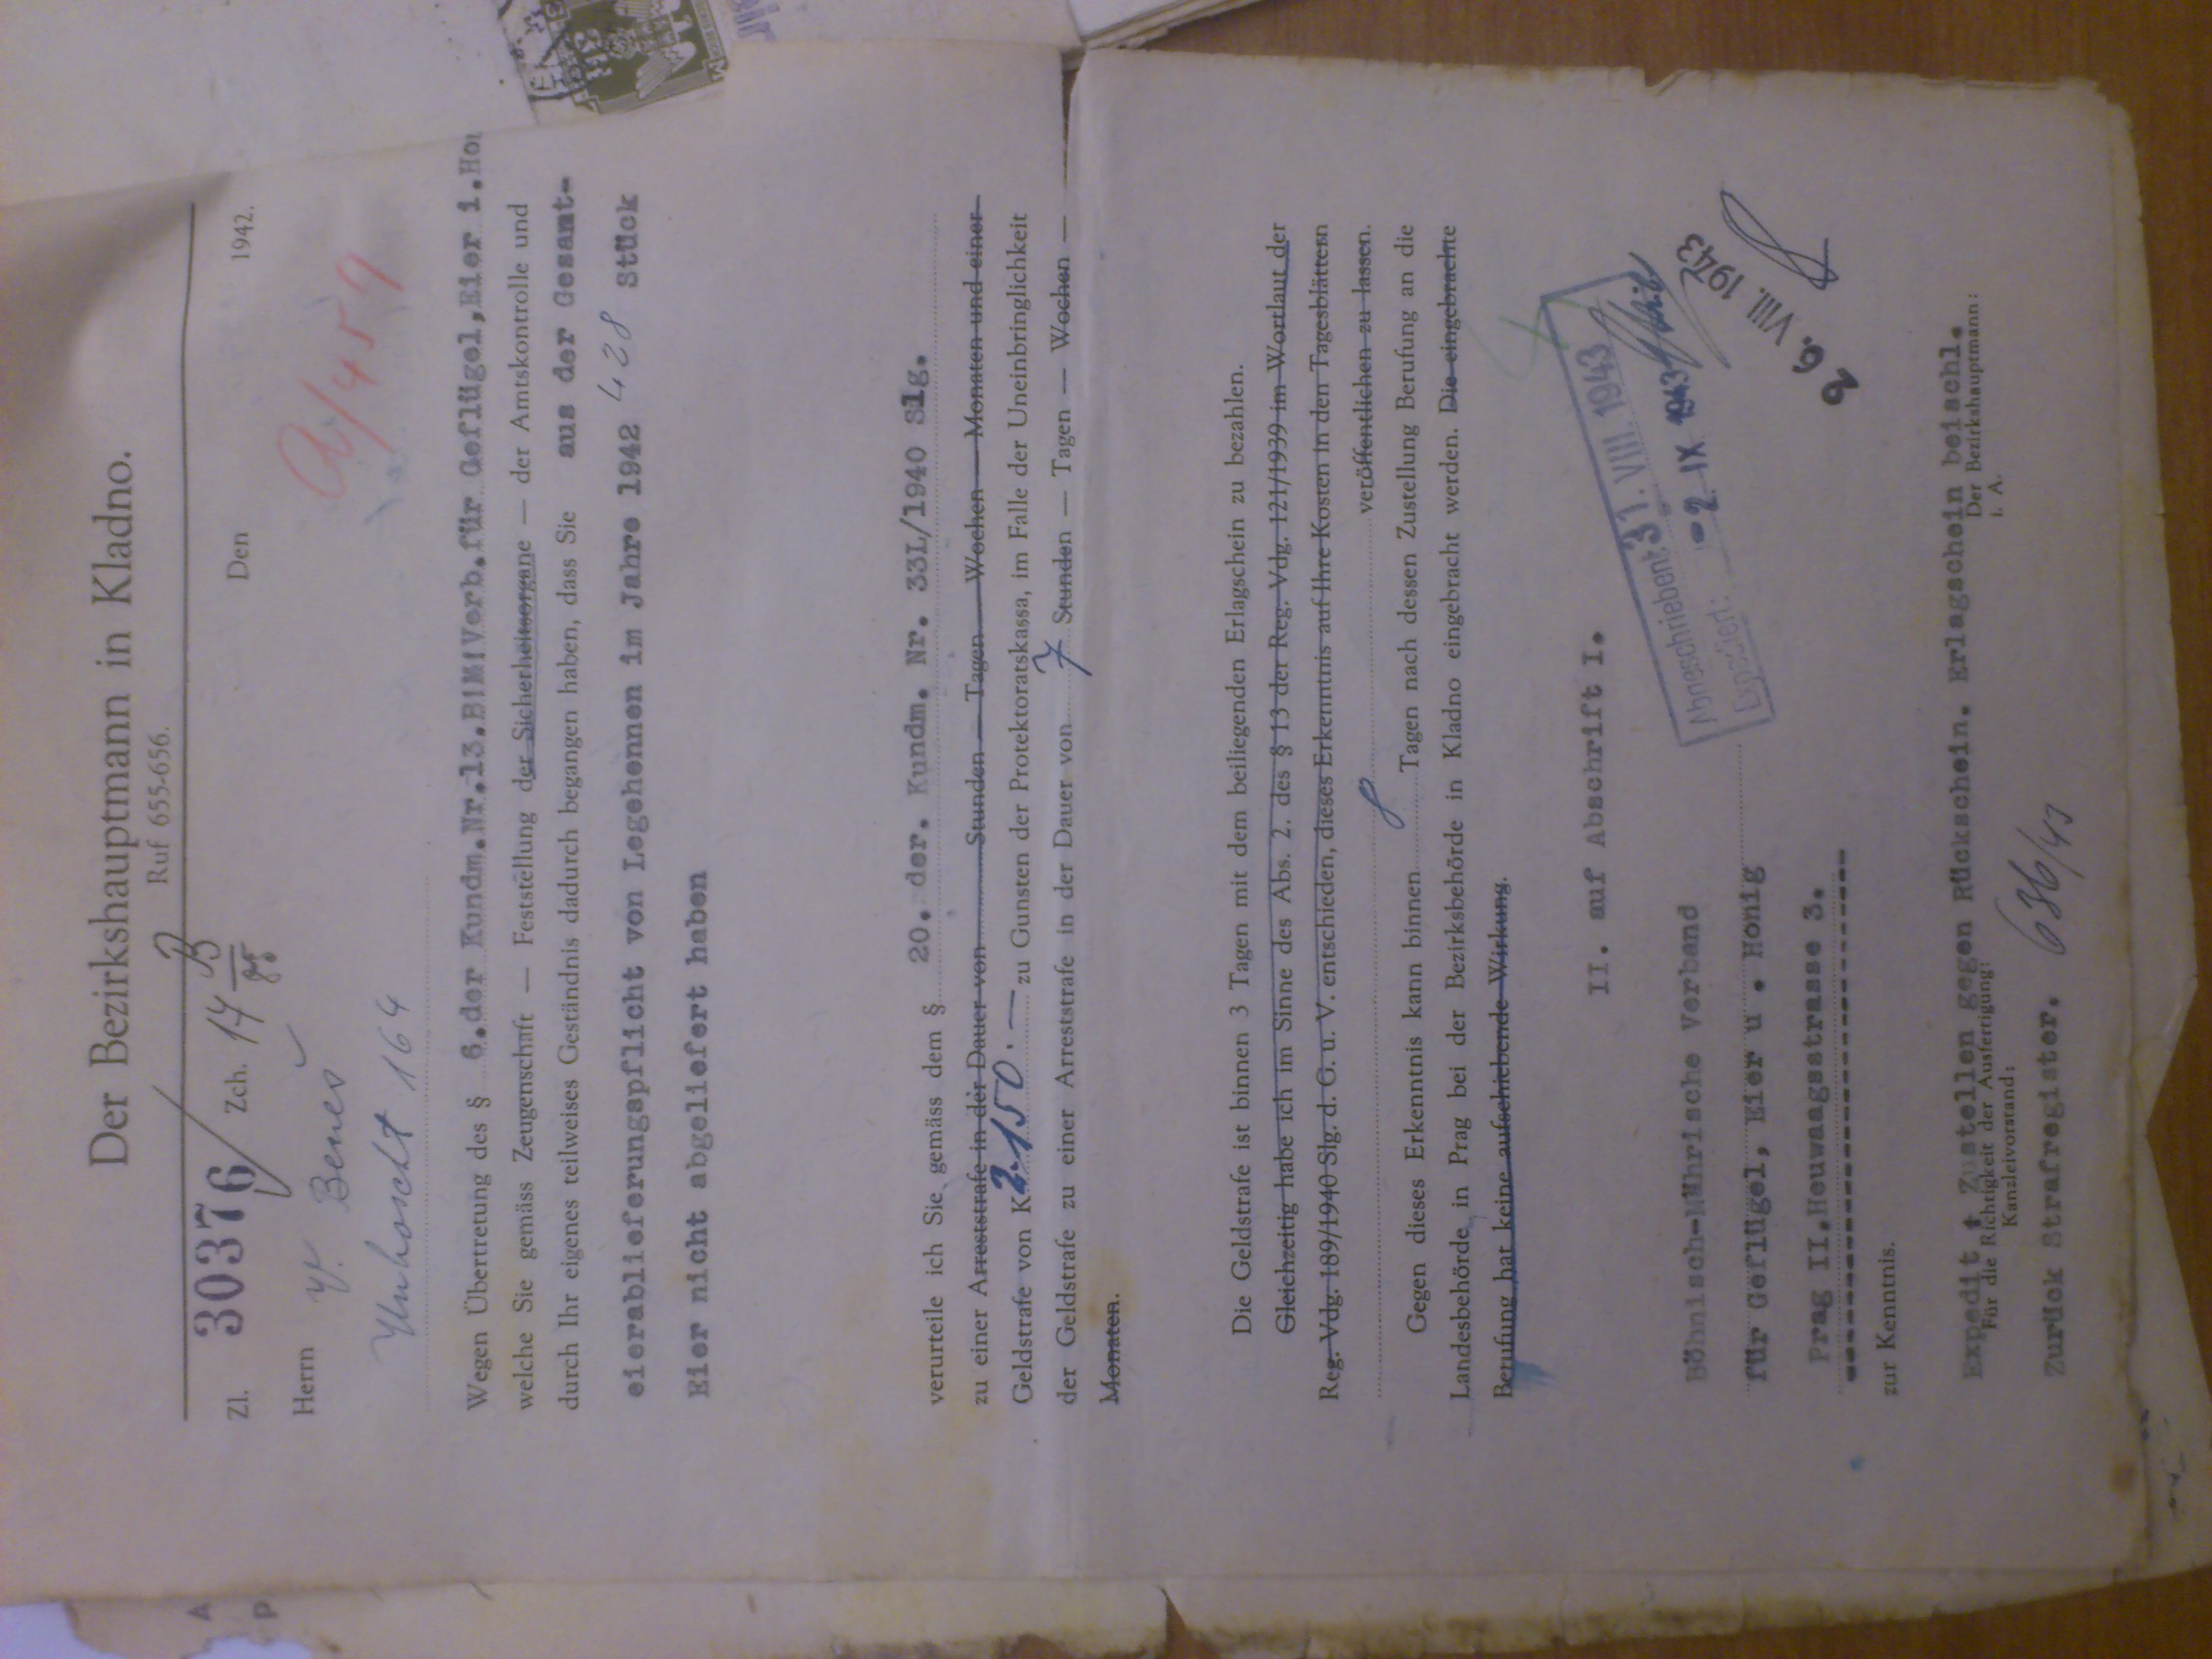 Der Bezirkshauptmann in Kladno.
Ruf 655-656.
Zl. 30376/ Zch. 17 B/85
Den 1942.
Herrn V. Beneš
A/459
Unhoscht 164
Wegen Übertretung des § 6.der Kundm.Nr.13.B!M!Verb.für Geflügel,Eier i.Ho
welche Sie gemäss Zeugenschaft — Feststellung der Sicherheitsorgane — der Amtskontrolle und
durch Ihr eigenes teilweises Geständnis dadurch begangen haben, dass Sie aus der Gesamt-
eierablieferungspflicht von Legehennen im Jahre 1942 428 Stück
Eier nicht abgeliefert haben
verurteile ich Sie gemäss dem § 20. der. Kundm. Nr. 33L/1940 Slg.
zu einer Arreststrafe in der Dauer von Stunden — Tagen — Wochen — Monaten und einer
Geldstrafe von K 2.150.— zu Gunsten der Protektoratskassa, im Falle der Uneinbringlichkeit
der Geldstrafe zu einer Arreststrafe in der Dauer von 7 Stunden — Tagen — Wochen —
Monaten.
Die Geldstrafe ist binnen 3 Tagen mit dem beiliegenden Erlagschein zu bezahlen.
Gleichzeitig habe ich im Sinne des Abs. 2. des § 13 der Reg. Vdg. 121/1939 im Wortlaut der
Reg. Vdg. 189/1940 Slg. d. G. u. V. entschieden, dieses Erkenntnis auf Ihre Kosten in den Tagesblättern
veröffentlichen zu lassen.
Gegen dieses Erkenntnis kann binnen 8 Tagen nach dessen Zustellung Berufung an die
Landesbehörde in Prag bei der Bezirksbehörde in Kladno eingebracht werden. Die eingebrachte
Berufung hat keine aufschiebende Wirkung.
II. auf Abschrift I.
Abgeschrieben: 31. VIII. 1943
Expediert: -2. IX 1943
26. VIII. 1943
Böhnisch-Mährische Verband
für Geflügel, Eier u . Honig
Prag II.Heuwaagsstrasse 3.
zur Kenntnis.
Expedit + Zustellen gegen Rückschein. Erlagschein beischl.
Für die Richtigkeit der Ausfertigung:
Kanzleivorstand:
Der Bezirkshauptmann:
i. A.
Zurück Strafregister. 636/43